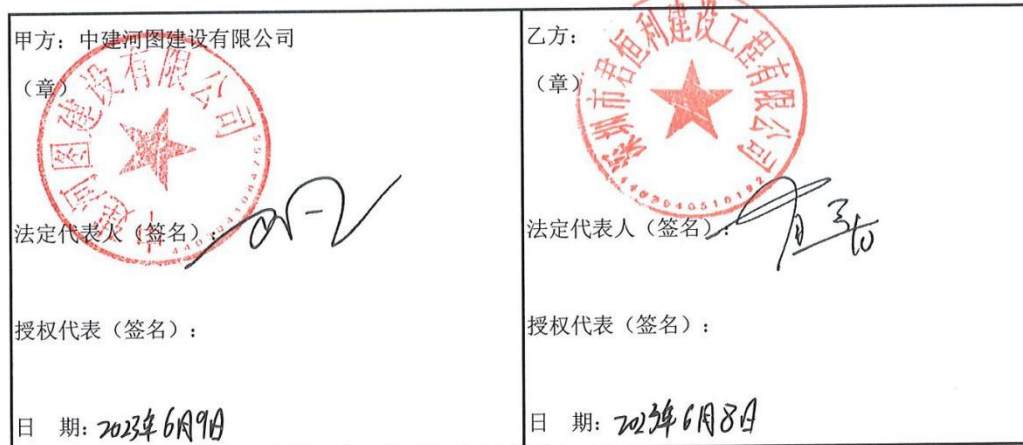 甲方：中建河图建设有限公司
（章）
中建河图建设有限公司
法定代表人（签名）：
授权代表（签名）：
日 期：2023年6月9日
乙方：
（章）
深圳市君恒利建设工程有限公司
法定代表人（签名）：
授权代表（签名）：
日 期：2023年6月8日